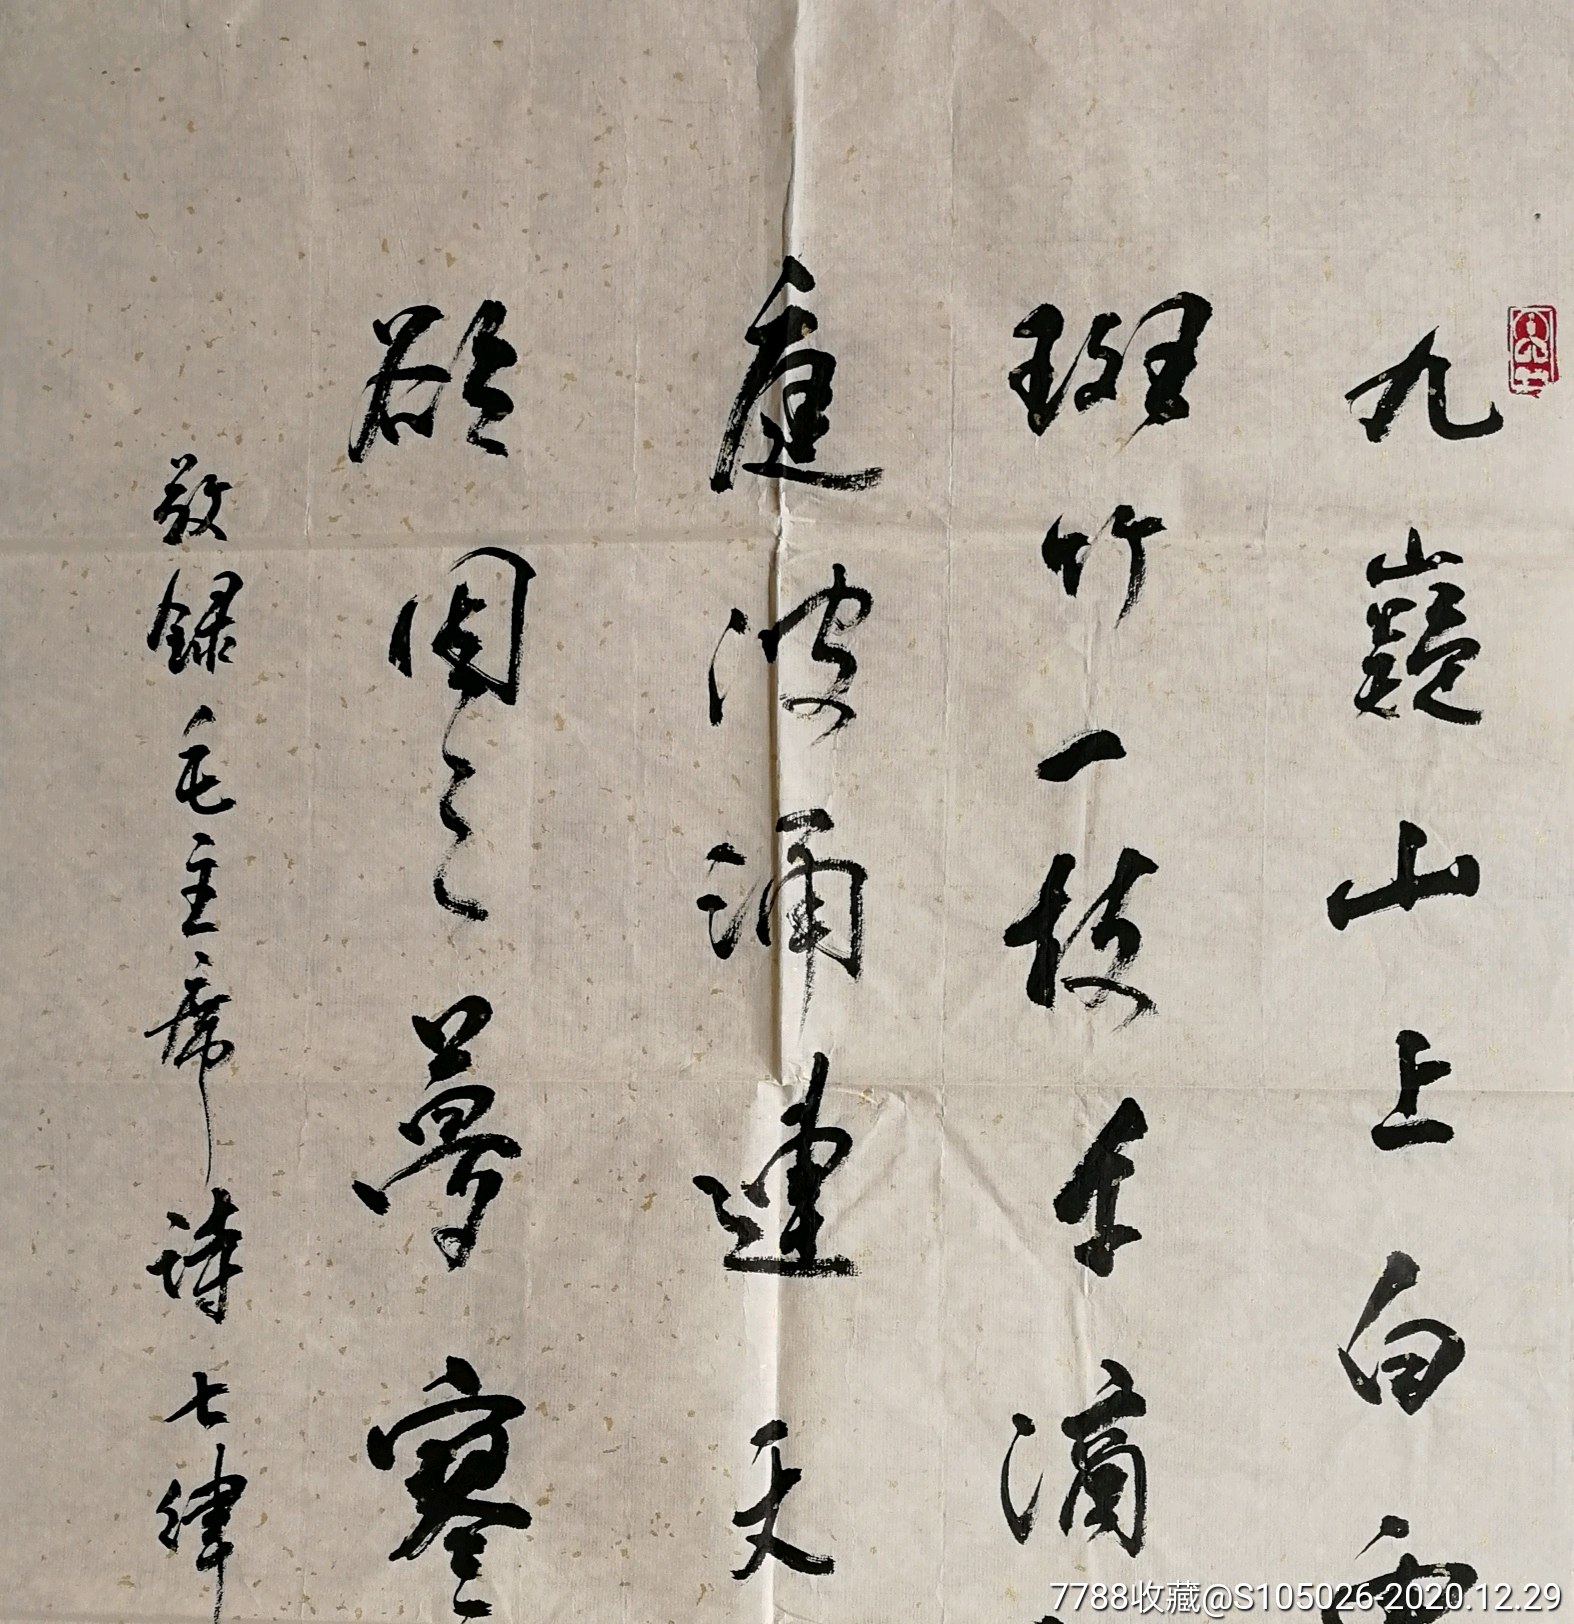 九嶷山上白雲
斑竹一枝千滴
庭波涌連天
欲因之夢寥
敬録毛主席詩七律
7788收藏@S105026-2020.12.29